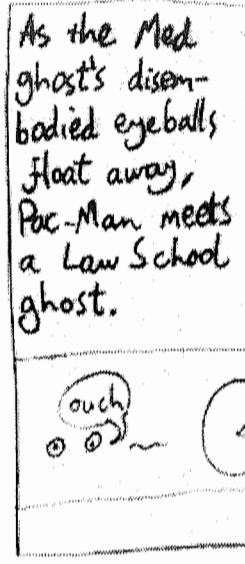 As the Med
ghost's disem-
bodied eyeballs
float away,
Pac-Man meets
a Law School
ghost.
ouch